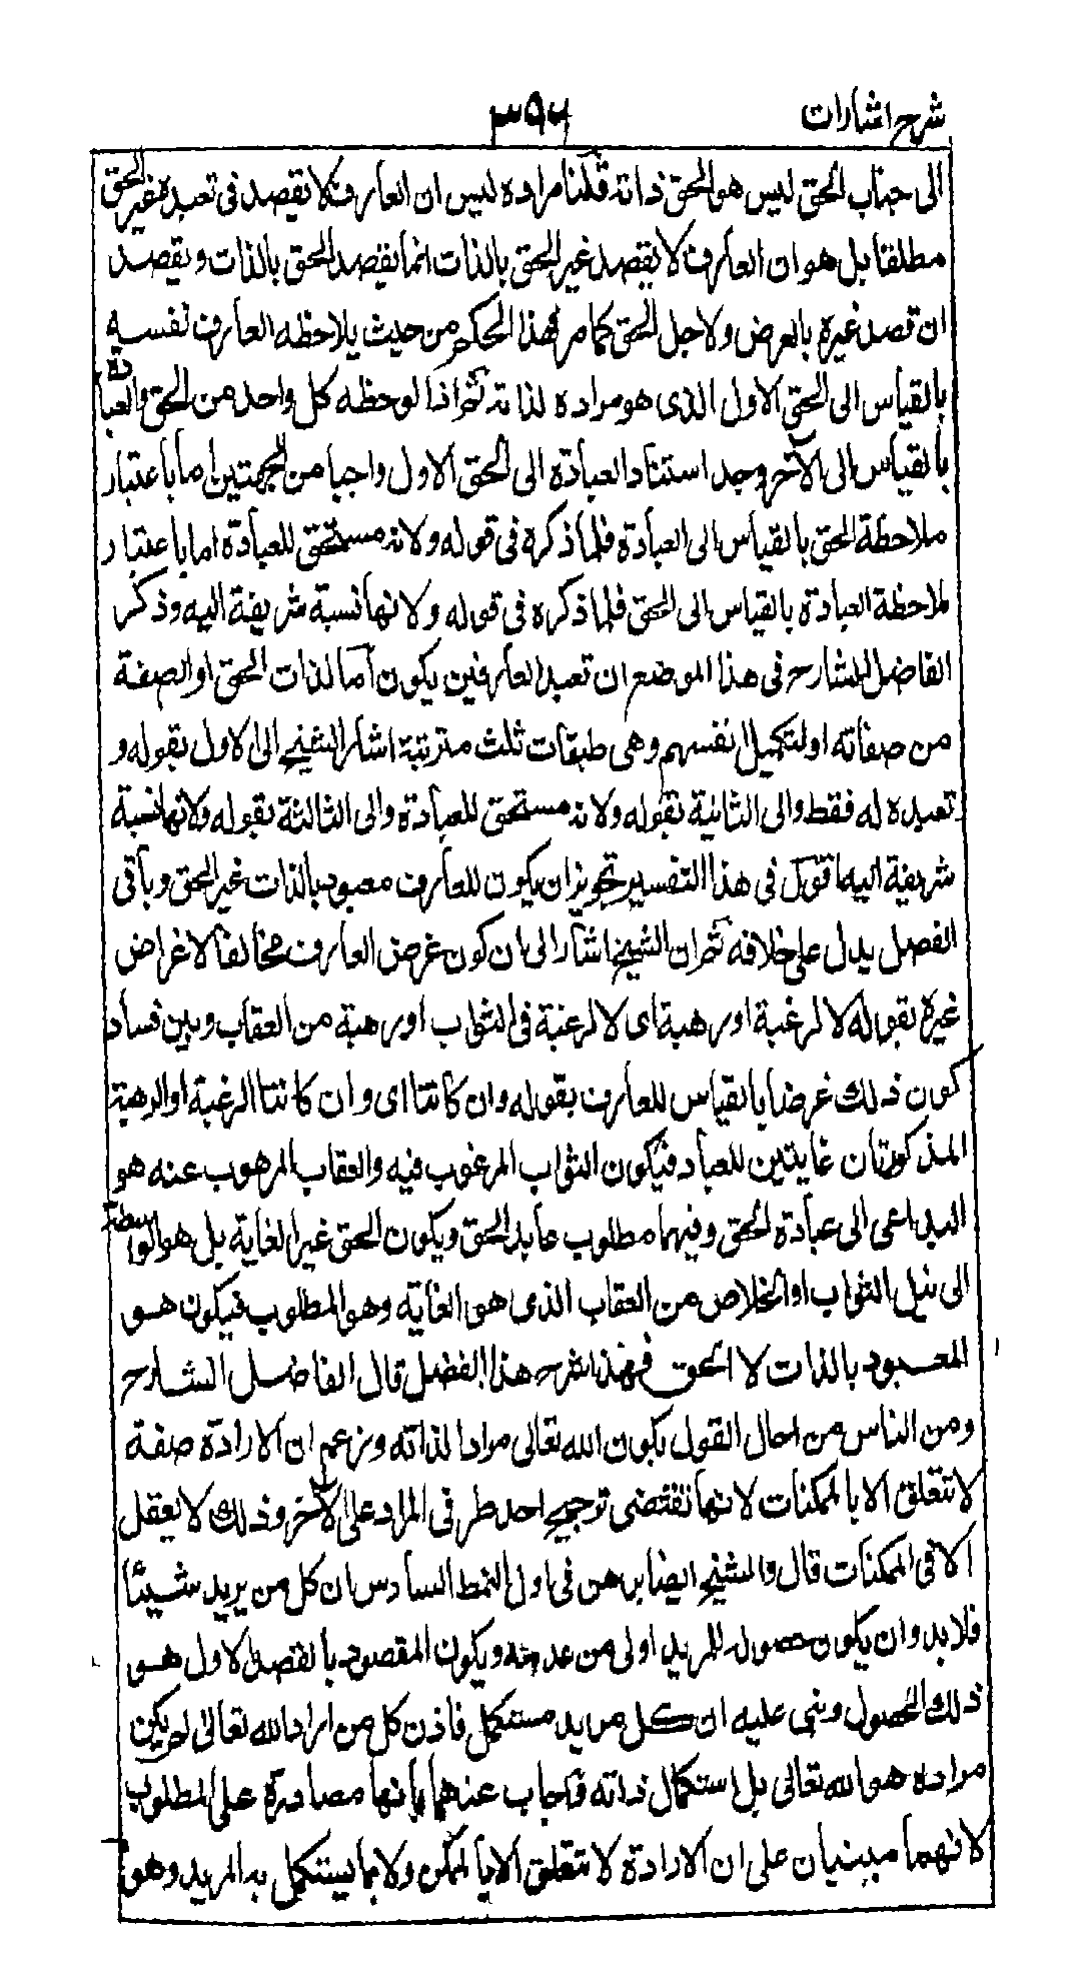 شرح اشارات
٣٩٦
الى جناب الحق ليس هو الحق ذاته قلنا مراده ليس ان العارف لا يقصد فى تعبده غير الحق
مطلقا بل هو ان العارف لا يقصد غير الحق بالذات انما يقصد الحق بالذات ويقصد
ان قصد غيره بالعرض ولاجل الحق كما مر فهذا الحكم من حيث يلاحظه العارف نفسه
بالقياس الى الحق الاول الذى هو مراده لذاته ثم اذا لوحظه كل واحد من الحق والعبادة
بالقياس الى الآخر وجد استناد العبادة الى الحق الاول واجبا من الجهتين اما باعتبار
ملاحظة الحق بالقياس الى العبادة فلما ذكره فى قوله ولانه مستحق للعبادة اما باعتبار
ملاحظة العبادة بالقياس الى الحق فلما ذكره فى قوله ولانها نسبة شريفة اليه وذكر
الفاضل الشارح فى هذا الموضع ان تعبد العارفين يكون اما لذات الحق او الصفة
من صفاته او لتكميل انفسهم وهى طبقات ثلث مترتبة اشار الشيخ الى الاول بقوله و
تعبده له فقط والى الثانية بقوله ولانه مستحق للعبادة والى الثالثة بقوله ولانها نسبة
شريفة اليه اقول فى هذا التفسير تجويز ان يكون للعارف معبود بالذات غير الحق وباقى
الفصل يدل على خلافه ثم ان الشيخ اشار الى ان كون غرض العارف مخالفا لاغراض
غيره بقوله لا لرغبة او رهبة اى لا لرغبة فى الثواب او رهبة من العقاب وبين فساد
كون ذلك غرضا بالقياس للعارف بقوله وان كانتا اى وان كانتا الرغبة او الرهبة
المذكورتان غايتين للعباد فيكون الثواب المرغوب فيه والعقاب المرهوب عنه هو
الداعى الى عبادة الحق وفيهما مطلوب عابد الحق ويكون الحق غير الغاية بل هو الواسطة
الى نيل الثواب او الخلاص من العقاب الذى هو الغاية وهو المطلوب فيكون هو
المعبود بالذات لا الحق فهذا شرح هذا الفصل قال الفاضل الشارح
ومن الناس من احال القول بكون الله تعالى مرادا لذاته وزعم ان الارادة صفة
لا تتعلق الا بالممكنات لانها تقتضى ترجيح احد طرفى المراد على الآخر وذلك لا يعقل
الا فى الممكنات قال والشيخ ايضا برهن فى اول النمط السادس ان كل من يريد شيئا
فلا بد وان يكون حصوله للمريد اولى من عدمه ويكون المقصود بالقصد الاول هو
ذلك الحصول وبنى عليه ان كل مريد مستكمل فاذن كل من اراد الله تعالى لم يكن
مراده هو الله تعالى بل استكمال ذاته واجاب عنهما بانها مصادرة على المطلوب
لانهما مبنيان على ان الارادة لا تتعلق الا بالممكن ولا بما يستكمل به المريد وهو